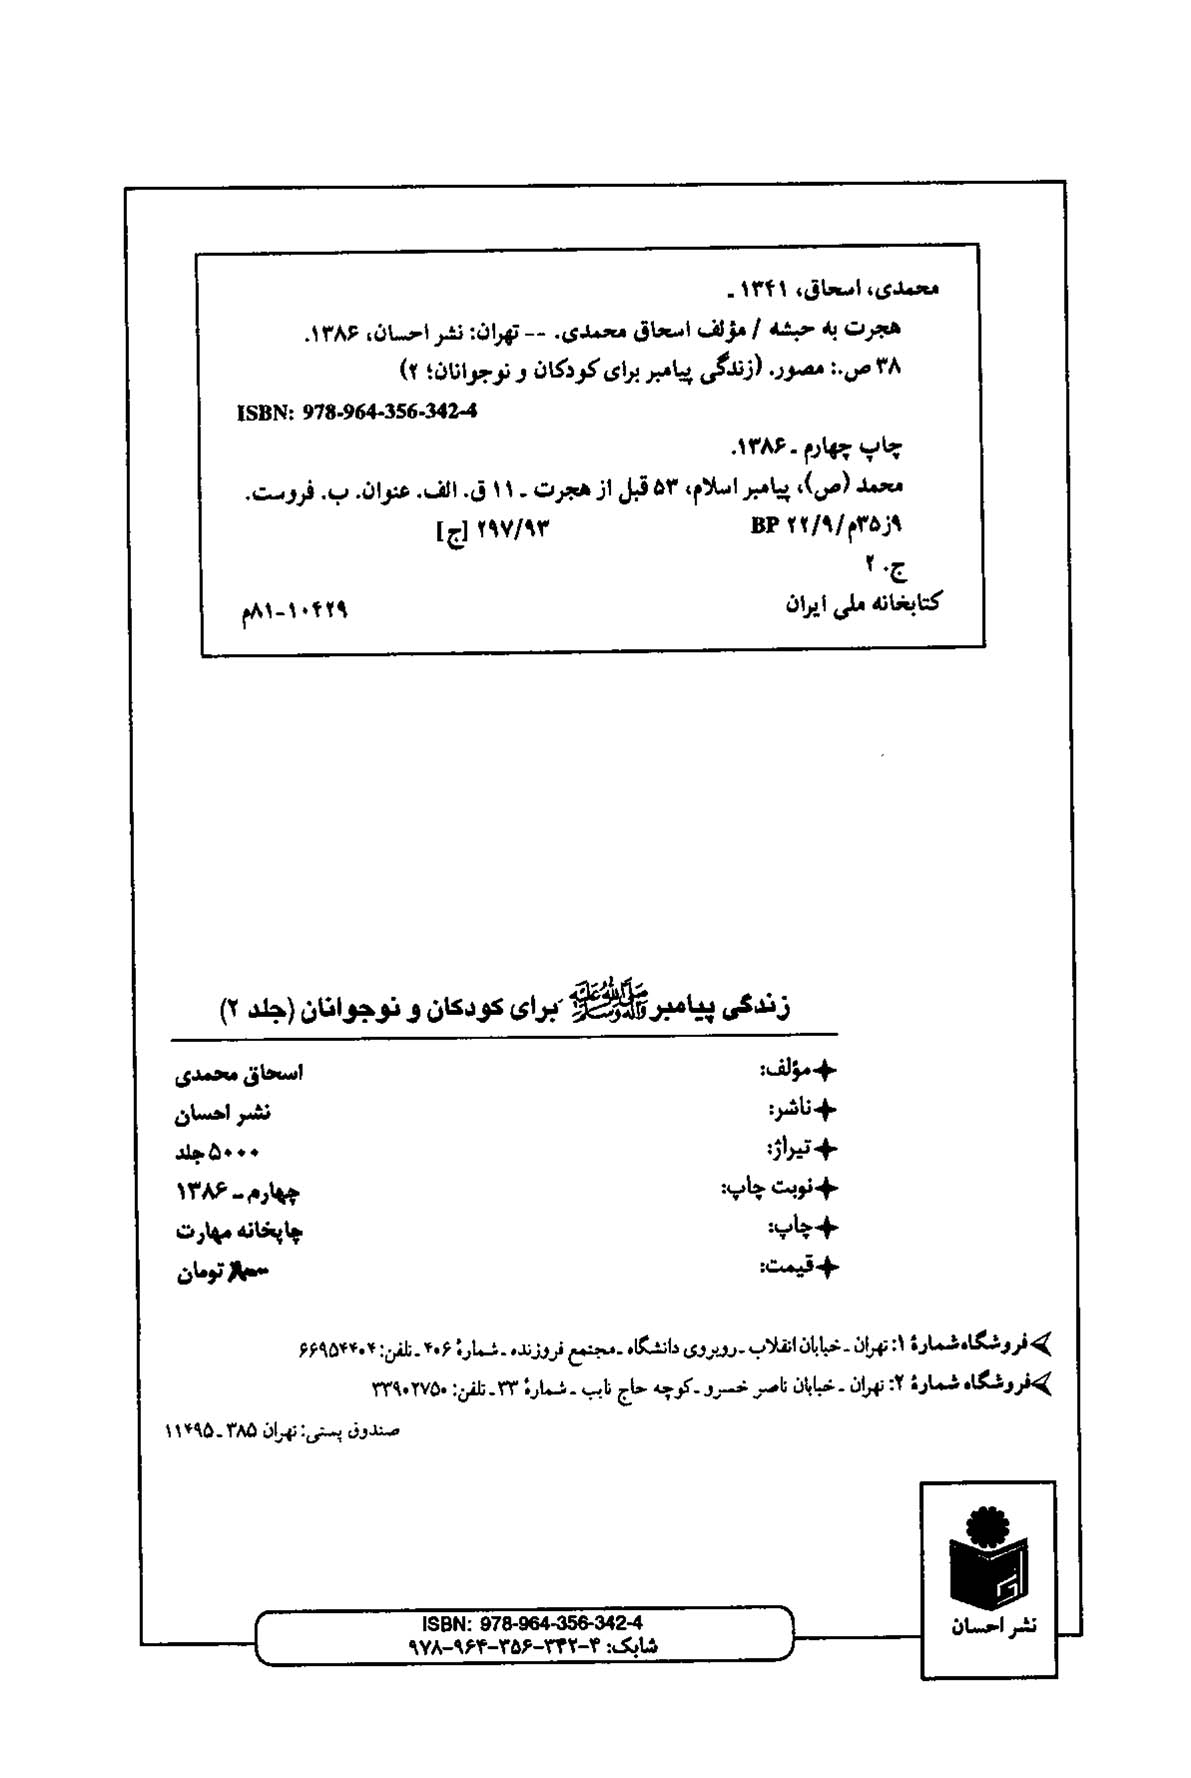 محمدی، اسحاق، ۱۳۴۱ ـ
هجرت به حبشه / مؤلف اسحاق محمدی. -- تهران: نشر احسان، ۱۳۸۶.
۳۸ ص.: مصور. (زندگی پیامبر برای کودکان و نوجوانان؛ ۲)
ISBN: 978-964-356-342-4
چاپ چهارم ـ ۱۳۸۶.
محمد (ص)، پیامبر اسلام، ۵۳ قبل از هجرت ـ ۱۱ ق. الف. عنوان. ب. فروست.
۹ز۳۵م/۲۲/۹ BP ۲۹۷/۹۳ [ج]
ج. ۲
کتابخانه ملی ایران ۱۰۴۲۹-۸۱م
زندگی پیامبر ﷺ برای کودکان و نوجوانان (جلد ۲)
مؤلف: اسحاق محمدی
ناشر: نشر احسان
تیراژ: ۵۰۰۰ جلد
نوبت چاپ: چهارم ـ ۱۳۸۶
چاپ: چاپخانه مهارت
قیمت: تومان
فروشگاه شمارهٔ ۱: تهران ـ خیابان انقلاب ـ روبروی دانشگاه ـ مجتمع فروزنده ـ شمارهٔ ۴۰۶ ـ تلفن: ۶۶۹۵۴۴۰۴
فروشگاه شمارهٔ ۲: تهران ـ خیابان ناصر خسرو ـ کوچه حاج نایب ـ شمارهٔ ۳۳ ـ تلفن: ۳۳۹۰۲۷۵۰
صندوق پستی: تهران ۳۸۵ ـ ۱۱۴۹۵
نشر احسان
ISBN: 978-964-356-342-4
شابک: ۴-۳۴۲-۳۵۶-۹۶۴-۹۷۸